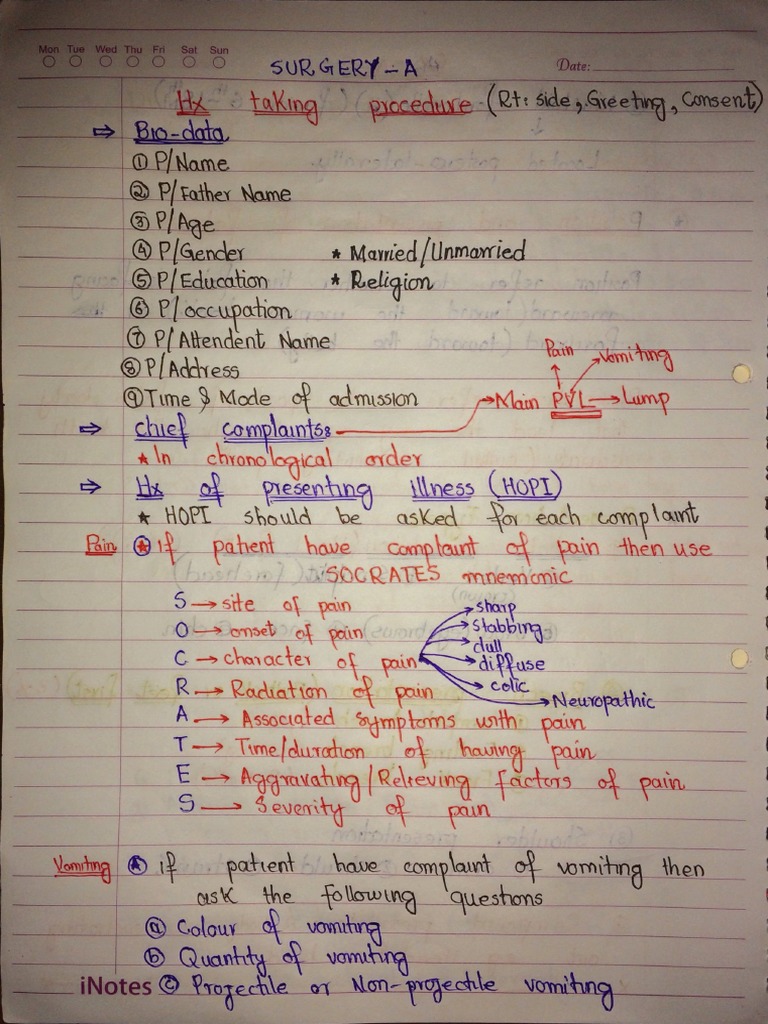 Mon Tue Wed Thu Fri Sat Sun
SURGERY-A
Date:
Hx taking procedure (Rt: side, Greeting, Consent)
⇒ Bio-data
① P/Name
② P/Father Name
③ P/Age
④ P/Gender * Married/Unmarried
⑤ P/Education * Religion
⑥ P/occupation
⑦ P/Attendent Name
⑧ P/Address
⑨ Time & Mode of admission
Pain Vomiting
→ Main PVL → Lump
⇒ chief complaints:
* In chronological order
⇒ Hx of presenting illness (HOPI)
* HOPI should be asked for each complaint
Pain * if patient have complaint of pain then use
SOCRATES mnemonic
S → site of pain
O → onset of pain
C → character of pain
sharp
stabbing
dull
diffuse
colic
Neuropathic
R → Radiation of pain
A → Associated symptoms with pain
T → Time/duration of having pain
E → Aggravating/Relieving factors of pain
S → Severity of pain
Vomiting * if patient have complaint of vomiting then
ask the following questions
ⓐ Colour of vomiting
ⓑ Quantity of vomiting
iNotes ⓒ Projectile or Non-projectile vomiting